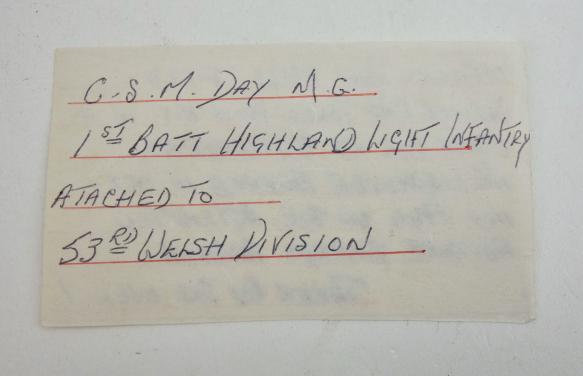 C.S.M. DAY M.G.
1ST BATT HIGHLAND LIGHT INFANTRY
ATACHED TO
53RD WELSH DIVISION